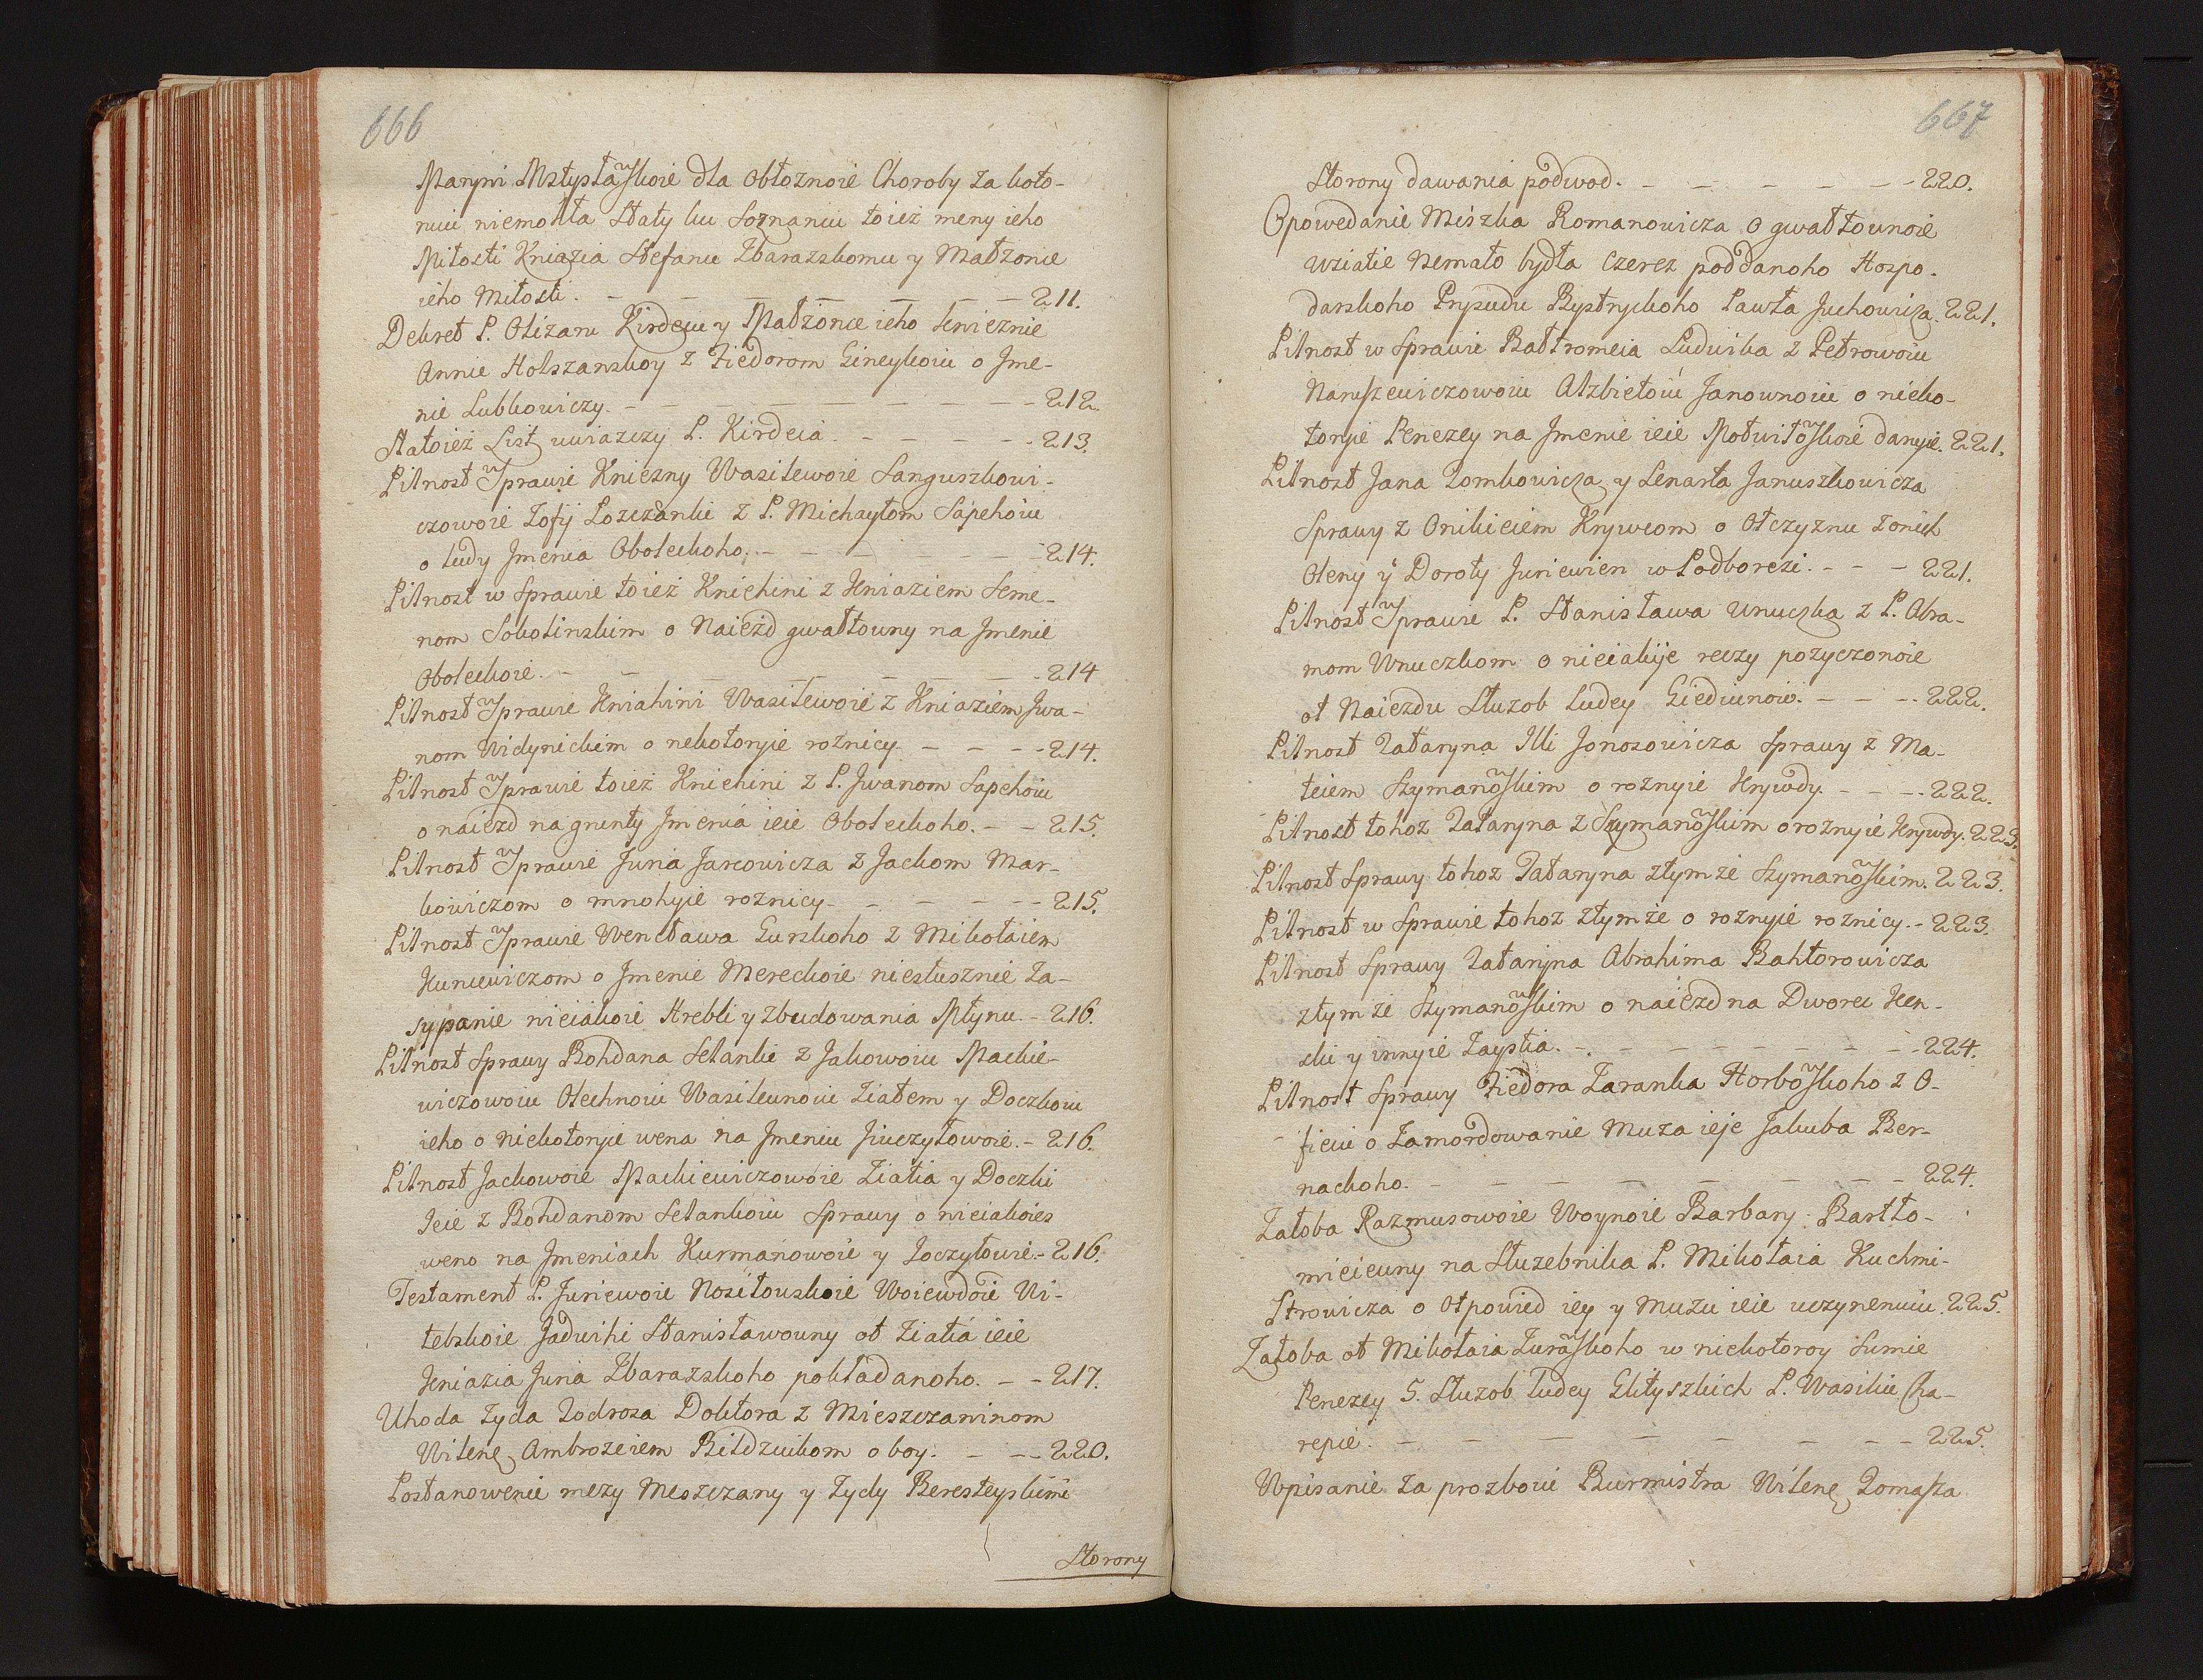 666
Maryni Mstysławskoie dla obłoznoie Choroby za koto-
ruiu niemohła Staty ku Soznaniu toież meny ieho
Miłosti Kniazia Stefanu Zbarazskomu y Małżonce
ieho Miłosti. - - - - - - 211.
Dekret P. Olizaru Kirdeiu y Małżonce ieho Knieznie
Annie Holszanskoy z Fiedorom Gineykoiu o Jme-
nie Lubkowiczy. - - - - - - 212.
Natoież List uwiazczy P. Kirdeia. - - - - 213.
Pilnost w Sprawie Kniezny Wasilewoie Sanguszkowi-
czowoie Zofij Łozczanki z P. Michayłom Sapehoiu
o ludy Jmenia Oboleckoho. - - - - - 214.
Pilnost w Sprawie toież Kniehini z Kniaziem Seme-
nom Sokolinskim o Naiezd gwałtowny na Jmenie
Oboleckoie. - - - - - - 214
Pilnost w Sprawie Kniahini Wasilewoie z Kniaziem Jwa-
nom Widynickim o nekotoryie roznicy. - - - 214.
Pilnost w Sprawie toież Kniehini z P. Jwanom Sapehoiu
o naiezd na grunty Jmenia ieie Oboleckoho. - - 215.
Pilnost w Sprawie Juria Jarcowicza z Jackom Mar-
kowiczom o mnohyie roznicy - - - - - 215.
Pilnost w Sprawie Wencława Gurskoho z Mikołaiem
Kuncewiczom o Jmenie Mereckoie niesłusznie Za-
sypanie nieiakoie Hrebli y zbudowania Młynu. - 216.
Pilnost Sprawy Bohdana Selanki z Jakowoiu Mackie-
wiczowoiu Olechnoiu Wasilewnoiu Ziatem y Doczkoiu
ieho o niekotoryie wena na Jmeniu Jiuczyłowoie. - 216.
Pilnost Jackowoie Mackiewiczowoie Ziatia y Doczki
Ieie z Bohdanom Selankoiu Sprawy o nieiakoies
weno na Jmeniach Kurmanowoie y Joczyłowie. - 216.
Testament P. Juriewoie Nosiłowskoie Woiewdoie Wi-
tebskoie Jadwihi Stanisławowny ot Ziatia ieie
Kniazia Juria Zbarazskoho pokładanoho. - - 217.
Uhoda Zyda Todrosa Doktora z Mieszczaninom
Wilene Ambrozeiem Bildziukom o boy. - - - 220.
Postanowenie mezy Meszczany y Zydy Beresteyskimi
Storony
667
Storony dawania podwod. - - - - - - 220.
Opowedanie Miszka Romanowicza o gwałtownoie
wziatie Nemało bydła czerez poddanoho Hospo-
darskoho Prysudu Bystryckoho Pawła Juchowicza. 221.
Pilnost w Sprawie Bałtromeia Ludwika z Petrowoiu
Naruszewiczowoiu Alzbietoiu Janownoiu o nieko-
toryie Penezey na Jmenie ieie Motwiłowskoie danyie. 221.
Pilnost Jana Tomkowicza y Lenarta Januszkowicza
Sprawy z Onikieiem Krywcom o Otczyznu Zonich
Oleny y Doroty Juriewien w Podborezi. - - - 221.
Pilnost w Sprawie P. Stanisława Wnuczka z P. Abra-
mom Wnuczkom o nieiakije reczy pozyczonoie
ot Naiezdu Służob Ludey Giedwinow. - - - 222.
Pilnost Tataryna Illi Jonosowicza Sprawy z Ma-
teiem Szymanowskim o roznyie Krywdy. - - - 222.
Pilnost tohoz Tataryna z Szymanowskim o roznyie Krywdy. 223.
Pilnost Sprawy tohoz Tataryna z tym że Szymanowskim. 223.
Pilnost w Sprawie tohoz z tym że o roznyie roznicy. - 223.
Pilnost Sprawy Tataryna Abrahima Bahtorowicza
z tym że Szymanowskim o naiezd na Dworec Ken-
ski y innyie Zaystia. - - - - - - - 224.
Pilnost Sprawy Fiedora Zaranka Horbowskoho z O-
fieiu o Zamordowanie Muza ieje Jakuba Ber-
nackoho. - - - - - - - 224.
Załoba Razmusowoie Woynoie Barbary Bartło-
mieiewny na Służebnika P. Mikołaia Kuchmi-
strowicza o otpowied iey y Muzu ieie uczynenuiu. 225.
Załoba ot Mikołaia Zurawskoho w niekotoroy Sumie
Penezey 5. Służob ludey Głityszkich P. Wasiliu Cha-
repie. - - - - - - - 225.
Wpisanie za prozboiu Burmistra Wilene Tomasza